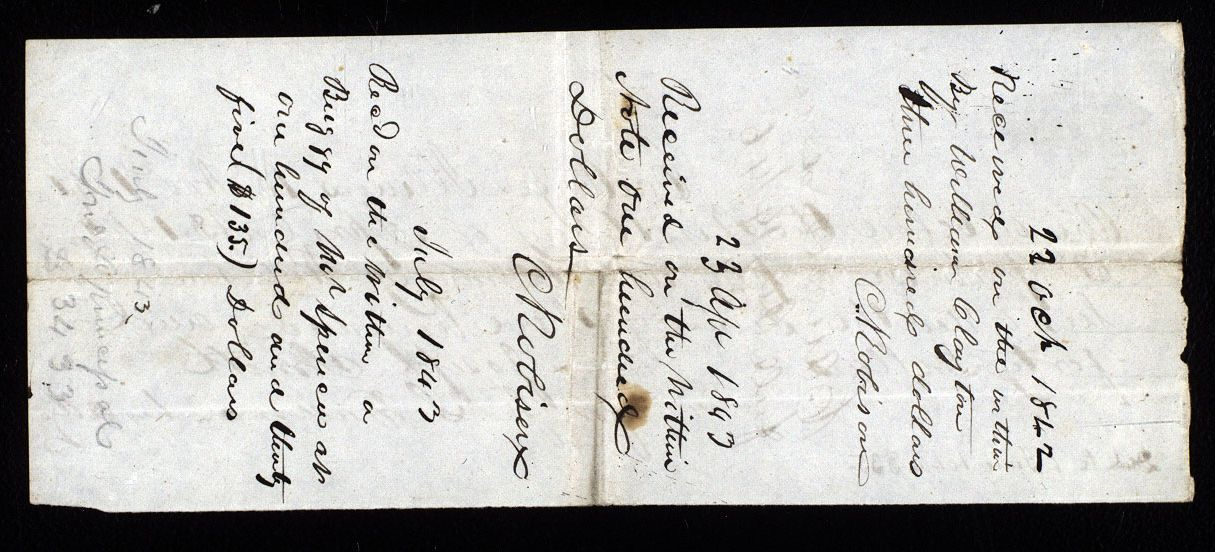 22 Oct 1842
Received on the within
By William Clayton
three hundred dollars
C. Robison
23 Apr 1843
Received on the Within
Note one hundred
Dollars
C Robison
July 1843
Recd on the within a
Buggy of Mr Spencer at
one hundred and thirty
five ($135.) Dollars
July 1843
principal